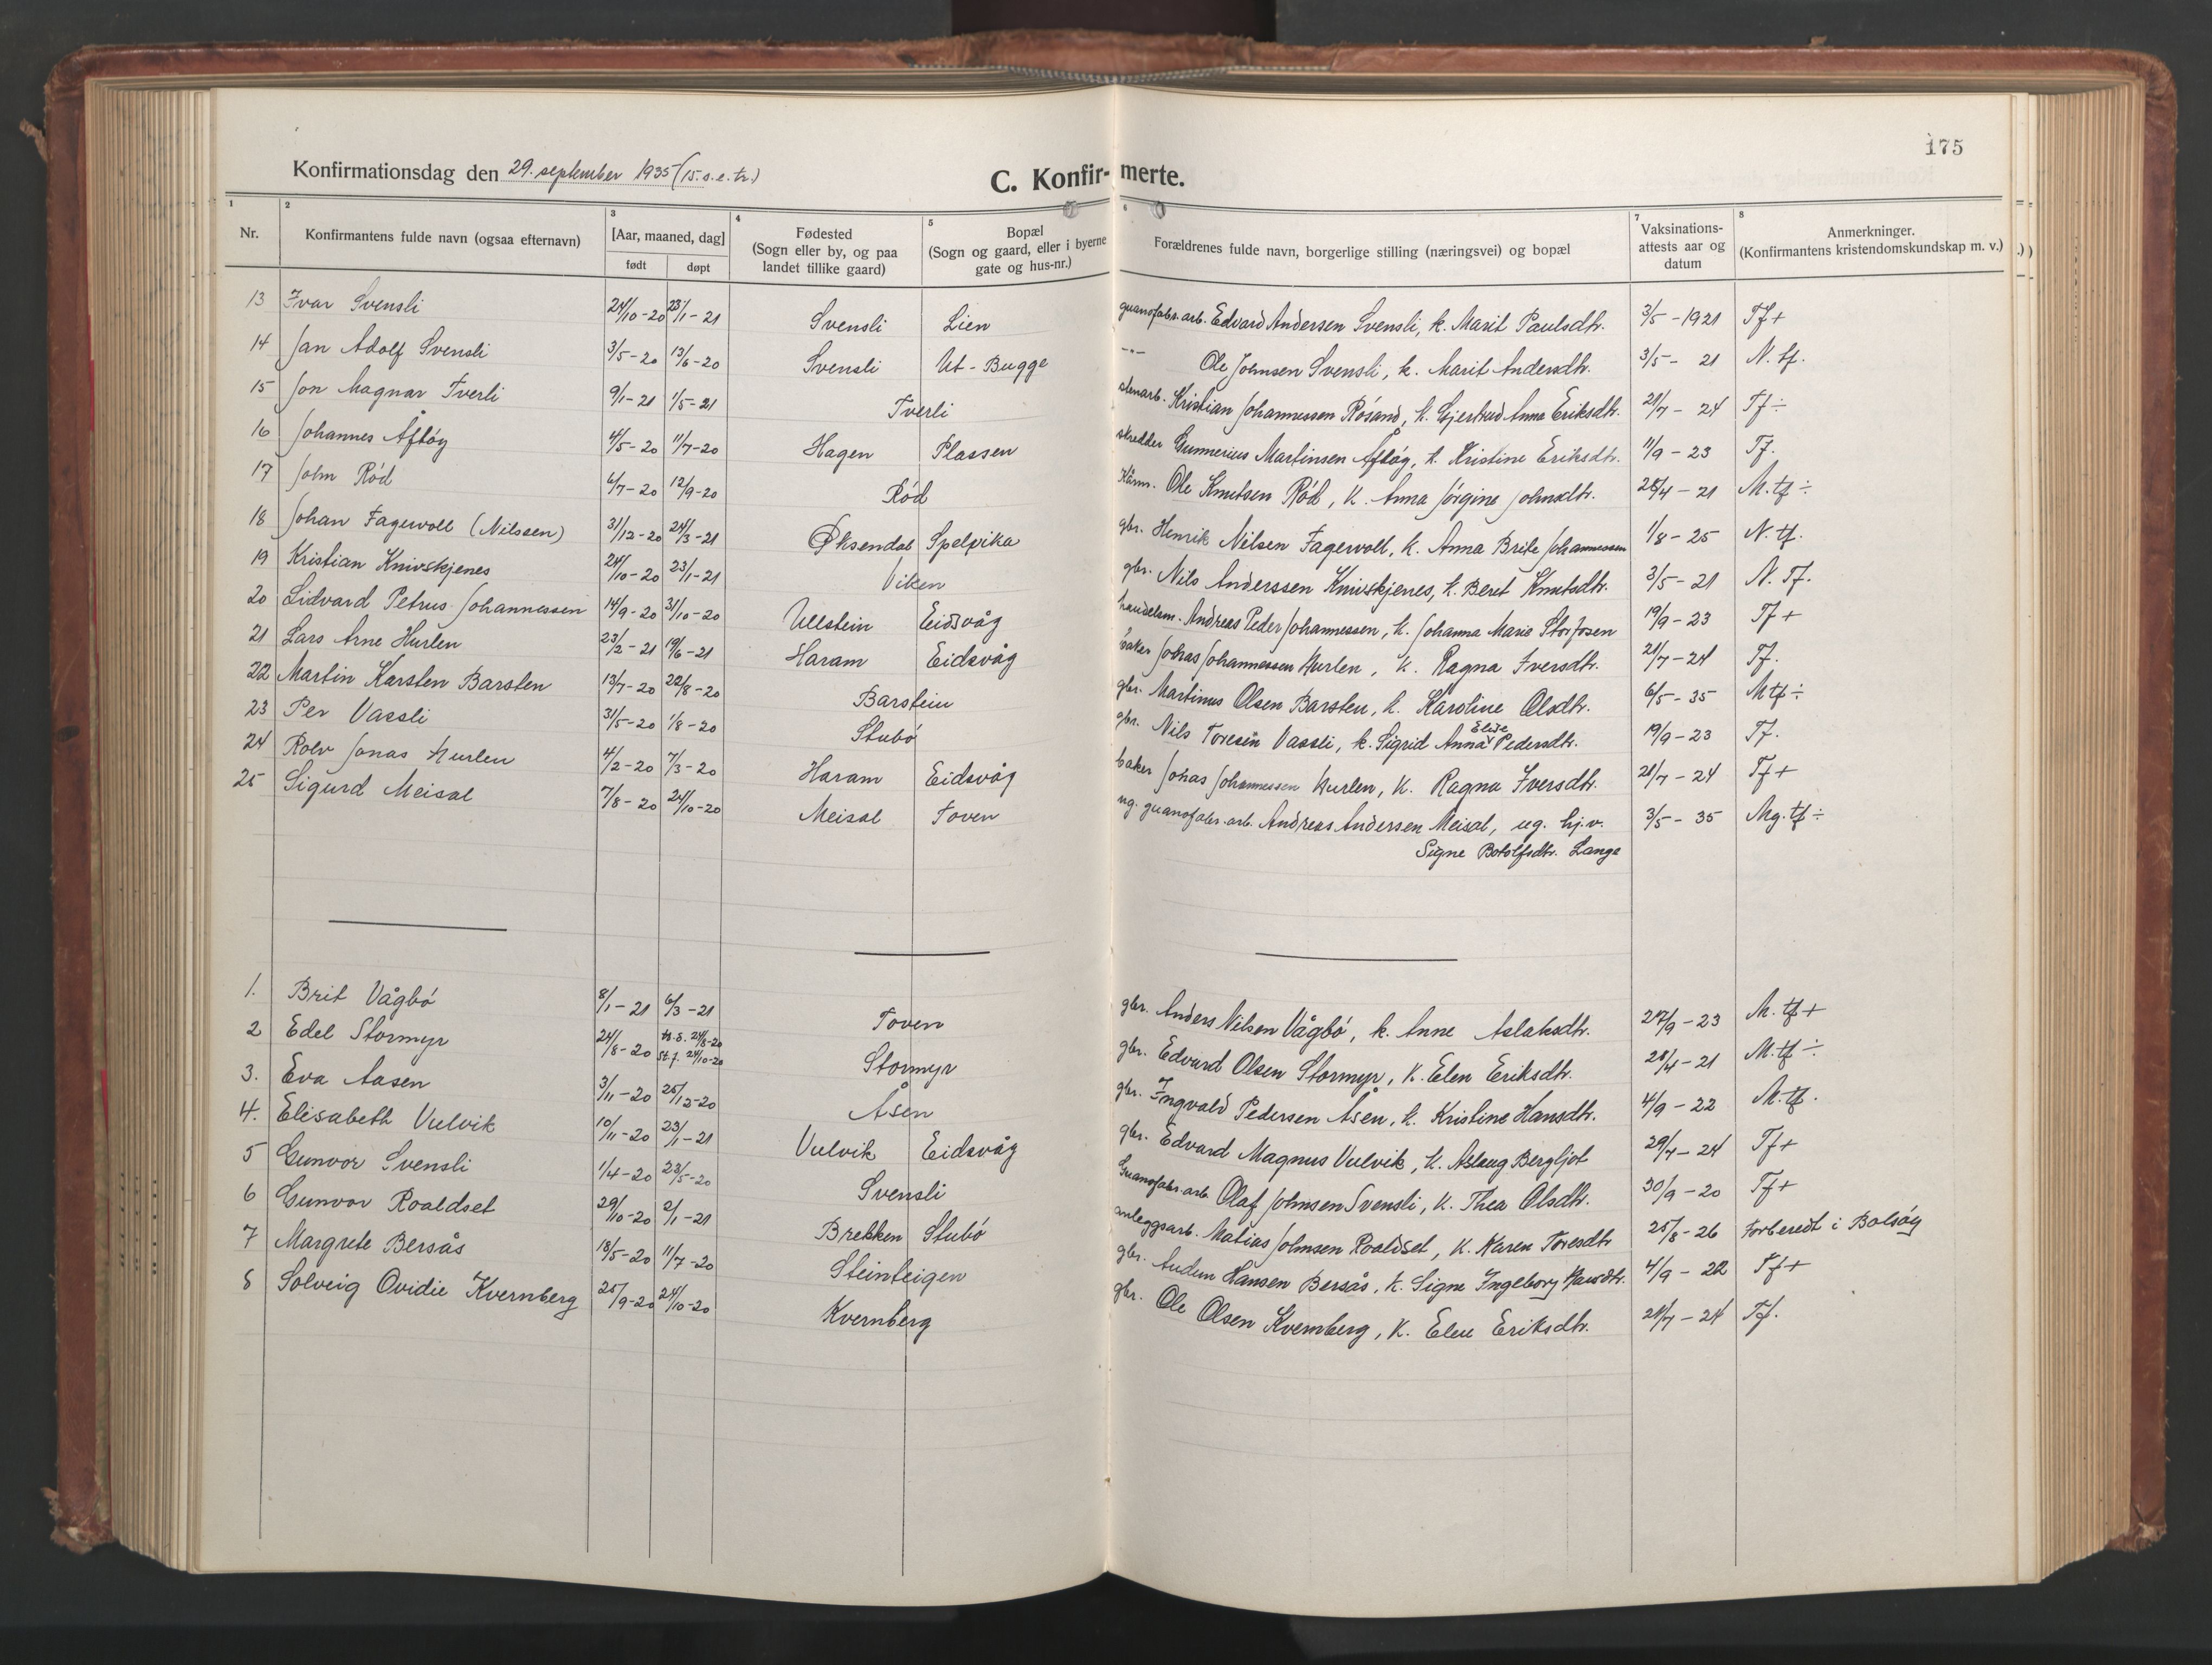 175
Konfirmationsdag den 29. september 1935 (15. s. e. tr.)
C. Konfir- merte.
1 2 3 4 5 6 7 8
Nr. Konfirmantens fulde navn (ogsaa efternavn) [Aar, maaned, dag] født døpt Fødested (Sogn eller by, og paa landet tillike gaard) Bopæl (Sogn og gaard, eller i byerne gate og hus-nr.) Forældrenes fulde navn, borgerlige stilling (næringsvei) og bopæl Vaksinations-attests aar og datum Anmerkninger. (Konfirmantens kristendomskundskap m. v.)
13 Ivar Svensli 24/10-20 23/1-21 Svensli Lien guanofabr. arb. Edvard Andersen Svensli, k. Marit Paulsdtr. 3/5-1921 Tf+
14 Jan Adolf Svensli 3/5-20 13/6-20 Svensli Ut-Bugge -"- Ole Johnsen Svensli, k. Marit Andersdtr. 3/5-21 N. tf.
15 Jon Magnar Tverli 9/1-21 1/5-21 Tverli stenarb. Kristian Johannessen Rösand, k. Gjertrud Anna Eriksdtr. 21/7-24 Tf÷
16 Johannes Åflöy 4/5-20 11/7-20 Hagen Plassen skredder Gunnerius Martinsen Åflöy, k. Kristine Eriksdtr. 11/9-23 Tf.
17 John Röd 6/7-20 12/9-20 Röd Kårm. Ole Knutsen Röd, k. Anna Jörgine Johnsdtr. 28/4-21 M. tf÷
18 Johan Fagervoll (Nilssen) 31/12-20 24/3-21 Øksendal Spelpika gbr. Henrik Nilsen Fagervoll, k. Anna Brite Johannessen 1/8-25 N. tf.
19 Kristian Knivskjenes 24/10-20 23/1-21 Viken gbr. Nils Anderssen Knivskjenes, k. Beret Knutsdtr. 3/5-21 N. Tf.
20 Lidvard Petrus Johannessen 14/9-20 31/10-20 Ullstein Eidsvåg handelsm. Andreas Peder Johannessen, k. Johanna Marie Storfosen 19/9-23 Tf+
21 Lars Arne Hurlen 23/2-21 19/6-21 Haram Eidsvåg baker Johas Johannessen Hurlen, k. Ragna Iversdtr. 21/7-24 Tf.
22 Martin Karsten Barsten 13/7-20 22/8-20 Barstein gbr. Martinus Olsen Barsten, k. Karoline Olsdtr. 6/5-35 M tf÷
23 Per Vassli 31/5-20 1/8-20 Stubö gbr. Nils Toresen Vassli, k. Sigrid Anna Elise Pedersdtr. 19/9-23 Tf.
24 Rolv Jonas Hurlen 4/2-20 7/3-20 Haram Eidsvåg baker Johas Johannessen Hurlen, k. Ragna Iversdtr. 21/7-24 Tf+
25 Sigurd Meisal 7/8-20 24/10-20 Meisal Toven ug. guanofabr. arb. Andreas Andersen Meisal, ug. hj.v. 3/5-35 Mg. tf÷
Signe Botolfsdtr. Lange
1. Brit Vågbö 8/1-21 6/3-21 Toven gbr. Anders Nilsen Vågbö, k. Anne Aslaksdtr. 27/9-23 M. tf+
2 Edel Stormyr 24/8-20 hj. d. 24/8-20 st. f. 24/10-20 Stormyr gbr. Edvard Olsen Stormyr, k. Elen Eriksdtr. 28/4-21 M. tf÷
3. Eva Aasen 3/11-20 25/12-20 Åsen gbr. Ingvald Pedersen Åsen, k. Kristine Hansdtr. 4/9-22 M. tf.
4. Elisabeth Vulvik 10/11-20 23/1-21 Vulvik Eidsvåg gbr. Edvard Magnus Vulvik, k. Aslaug Bergljot 29/4-24 Tf+
5 Gunvor Svensli 1/4-20 23/5-20 Svensli Guanofabr. arb. Olaf Johnsen Svensli, k. Thea Olsdtr. 30/9-20 Tf+
6 Gunvor Roaldset 29/10-20 2/1-21 Brekken Stubö anleggsarb. Matias Johnsen Roaldset, k. Karen Toresdtr 25/8-26 Forberedt i Bolsöy
7 Margrete Bersås 18/5-20 11/7-20 Steinteigen gbr. Audun Hansen Bersås, k. Signe Ingeborg Hansdtr. 4/9-22 Tf+
8 Solveig Ovidie Kvernberg 25/9-20 24/10-20 Kvernberg gbr. Ole Olsen Kvernberg, k. Elen Eriksdtr. 21/7-24 Tf.